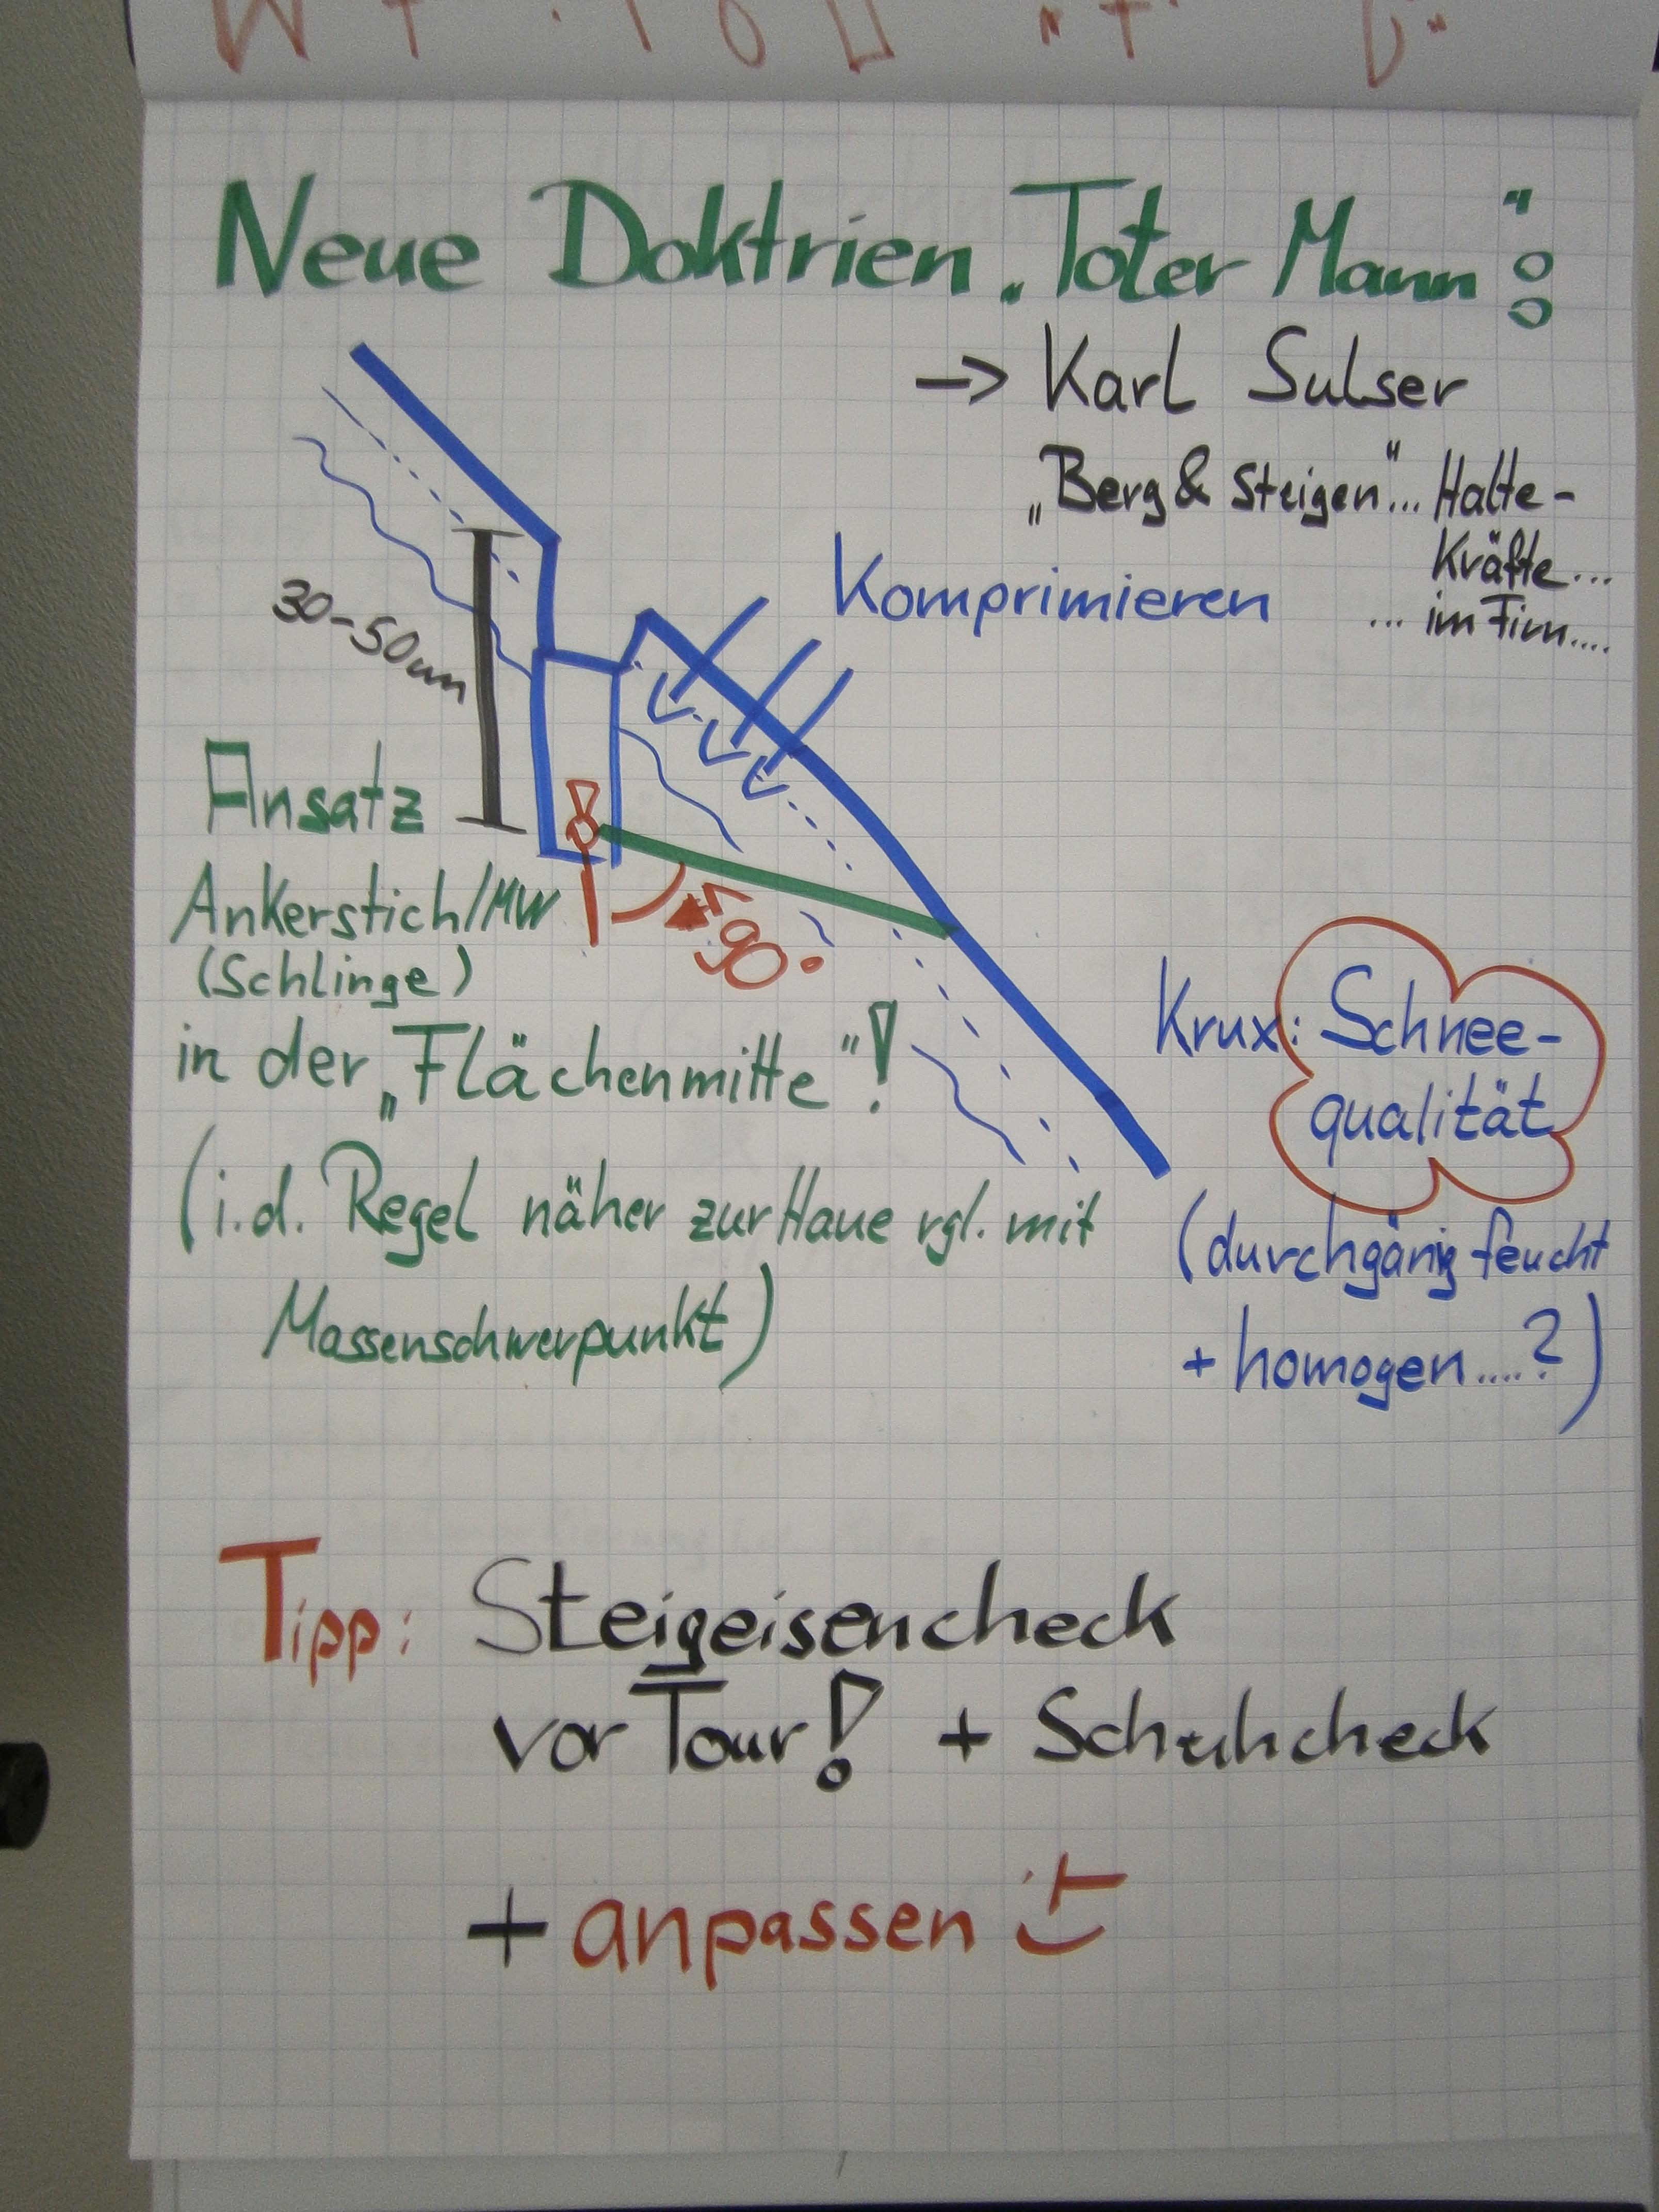 Neue Doktrien „Toter Mann":
→ Karl Sulser
„Berg & Steigen"... Halte-
Kräfte...
... im Firn....
Komprimieren
30-50cm
Ansatz
Ankerstich/MW
(Schlinge)
in der „Flächenmitte"!
(i.d. Regel näher zur Haue vgl. mit
Massenschwerpunkt)
<90°
Krux: Schnee-
qualität
(durchgänig feucht
+ homogen....?)
Tipp: Steigeisencheck
vor Tour! + Schuhcheck
+ anpassen